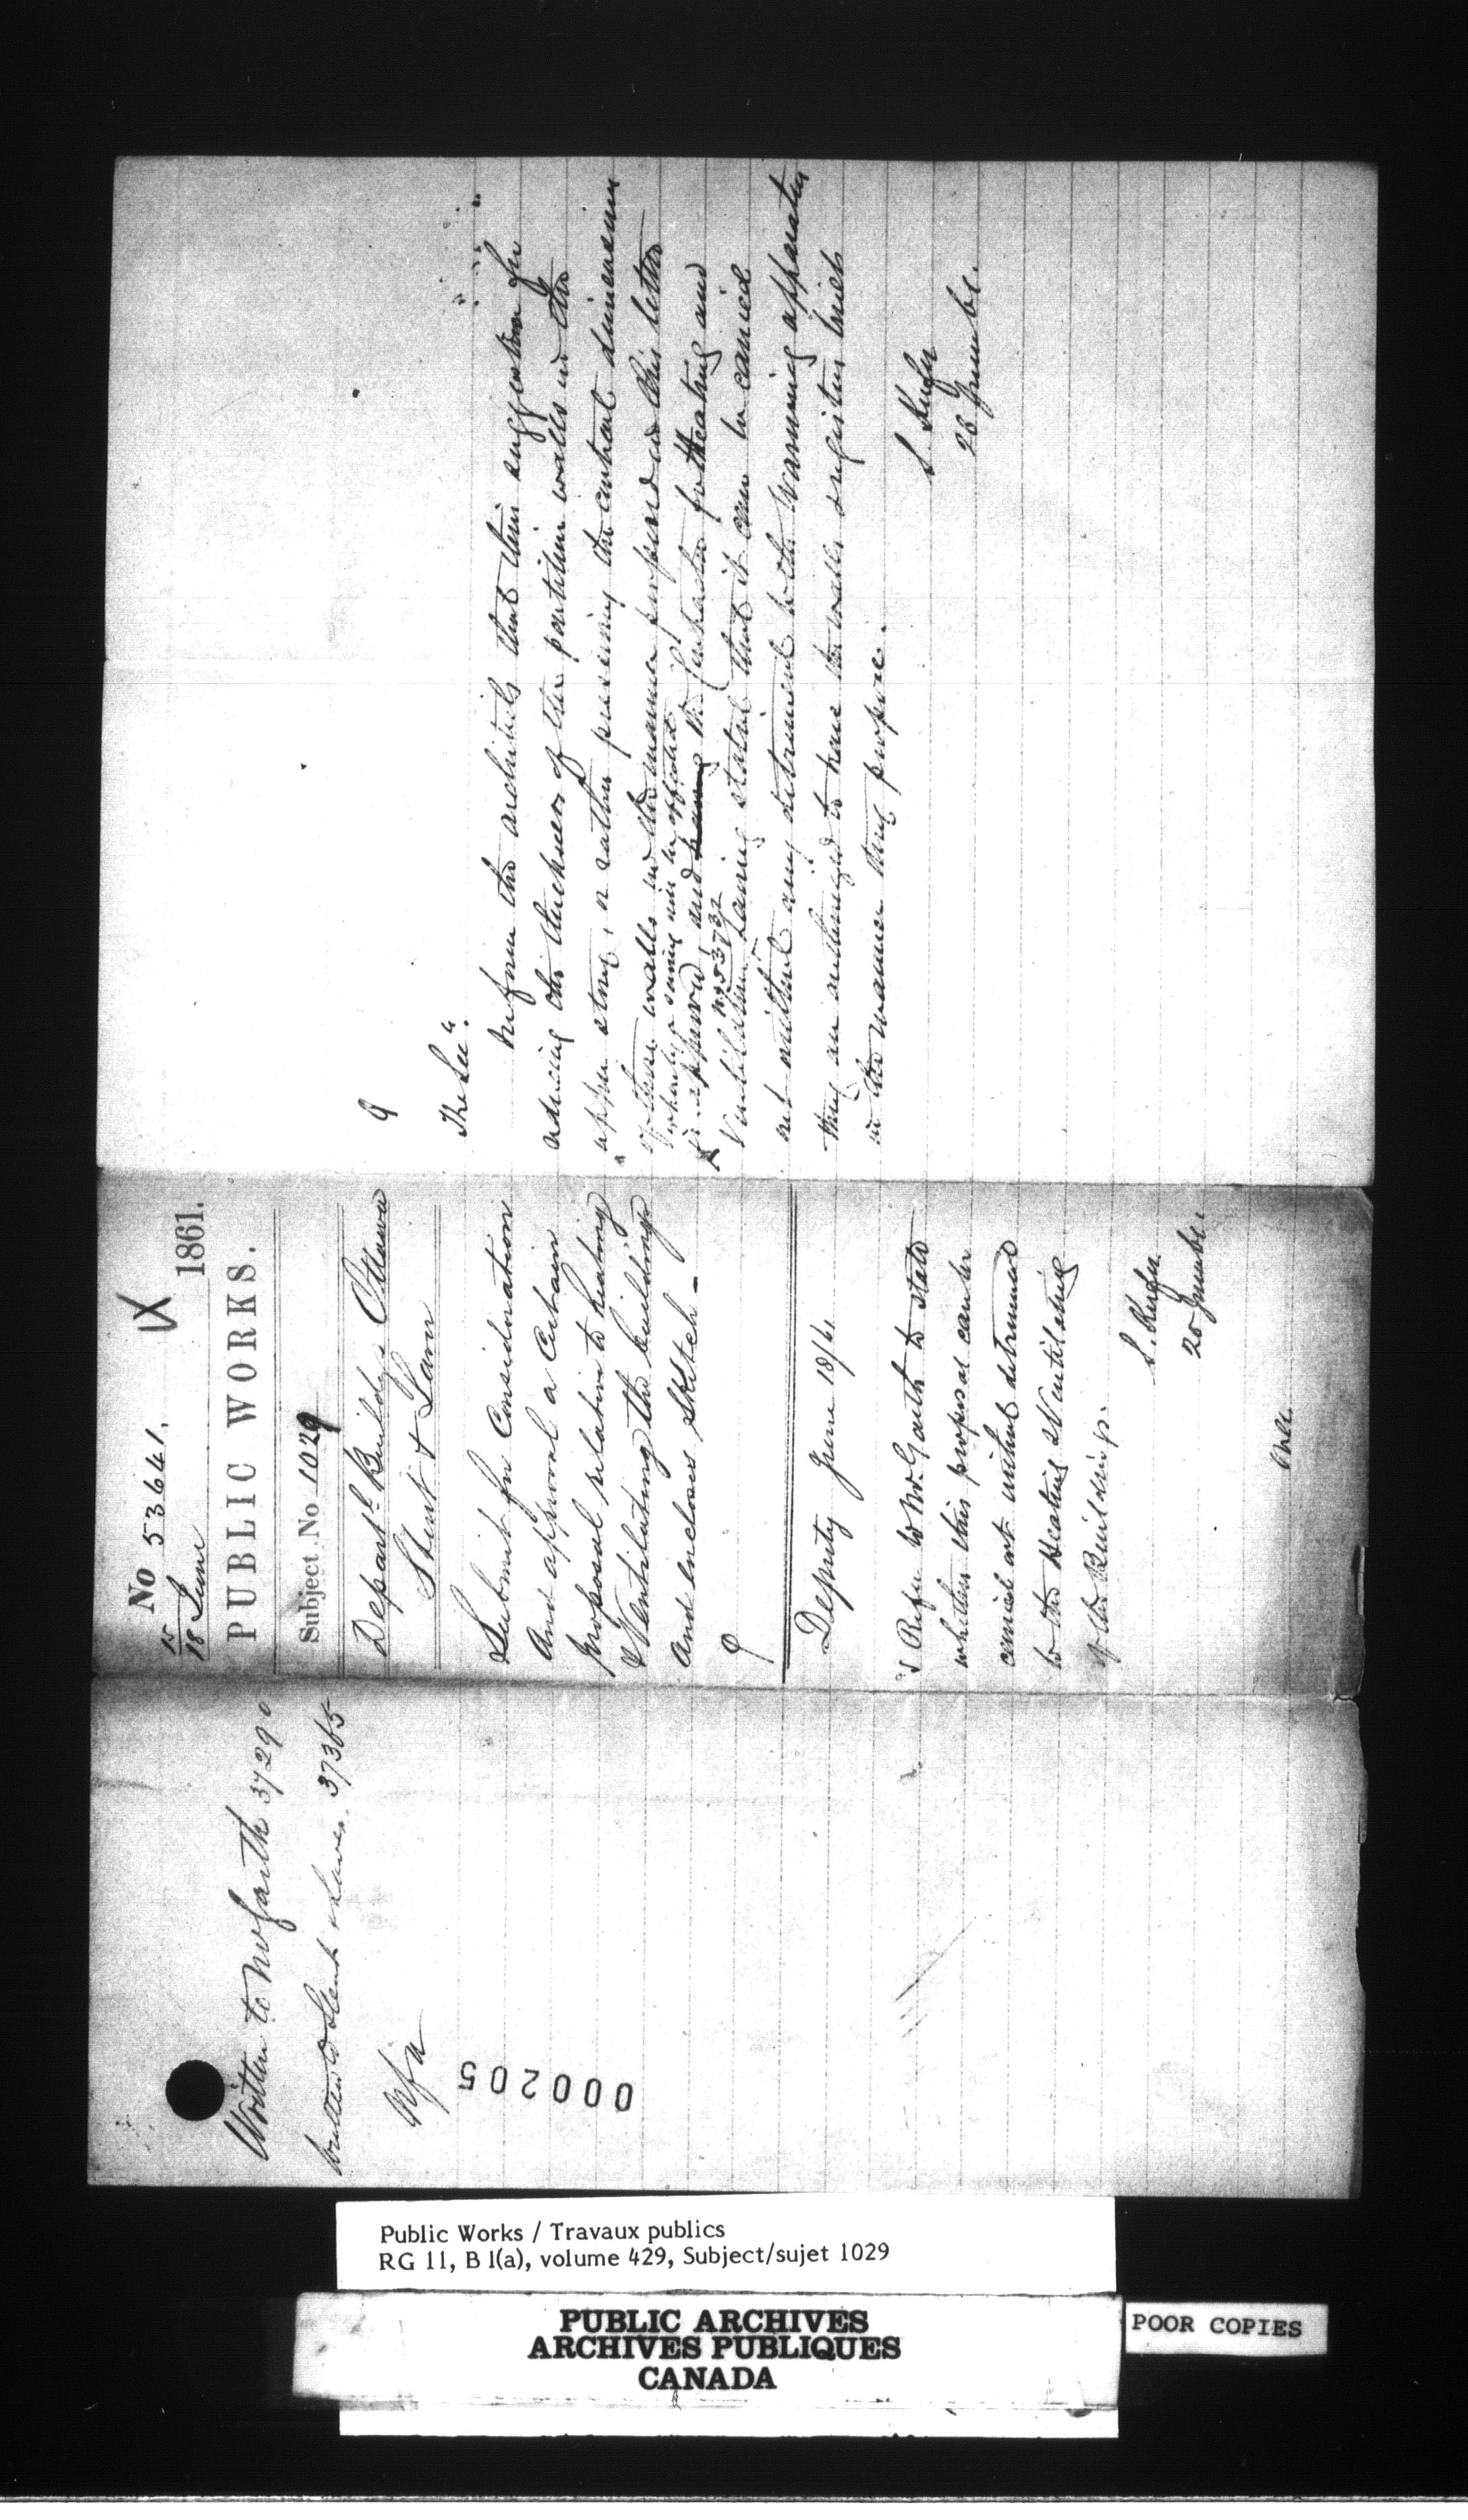 No 53641.
15
18 June
1861.
PUBLIC WORKS.
Subject No 1029
Depart.l Buildgs Ottawa
Stent & Laver
Submit for Consideration
and approval a Certain
proposal relative to heating
& Ventilating the buildings
and encloses Sketch -
Deputy June 18/61
Refer to Mr. Garth to state
whether this proposal can be
carried out without detriment
to the Heating & Ventilating
of the Buildings.
S. Keefer
20 June
over
The Sec.y
Inform the architects that their suggestion for
reducing the thickness of the partition walls in the
upper story, or rather preserving the contract dimensions
of those walls in the manner proposed in this letter
whereby a saving will be effected
is approved, and the Contractor for Heating and
Ventilation No 53732 having stated that it can be carried
out without any detriment to the warming apparatus
they are authorized to have the walls & registers built
in the manner they propose.
S Keefer
26 June
Written to Mr Garth 37290
Written to Stent & Laver. 37365
000205
Public Works / Travaux publics
RG 11, B 1(a), volume 429, Subject/sujet 1029
PUBLIC ARCHIVES
ARCHIVES PUBLIQUES
CANADA
POOR COPIES